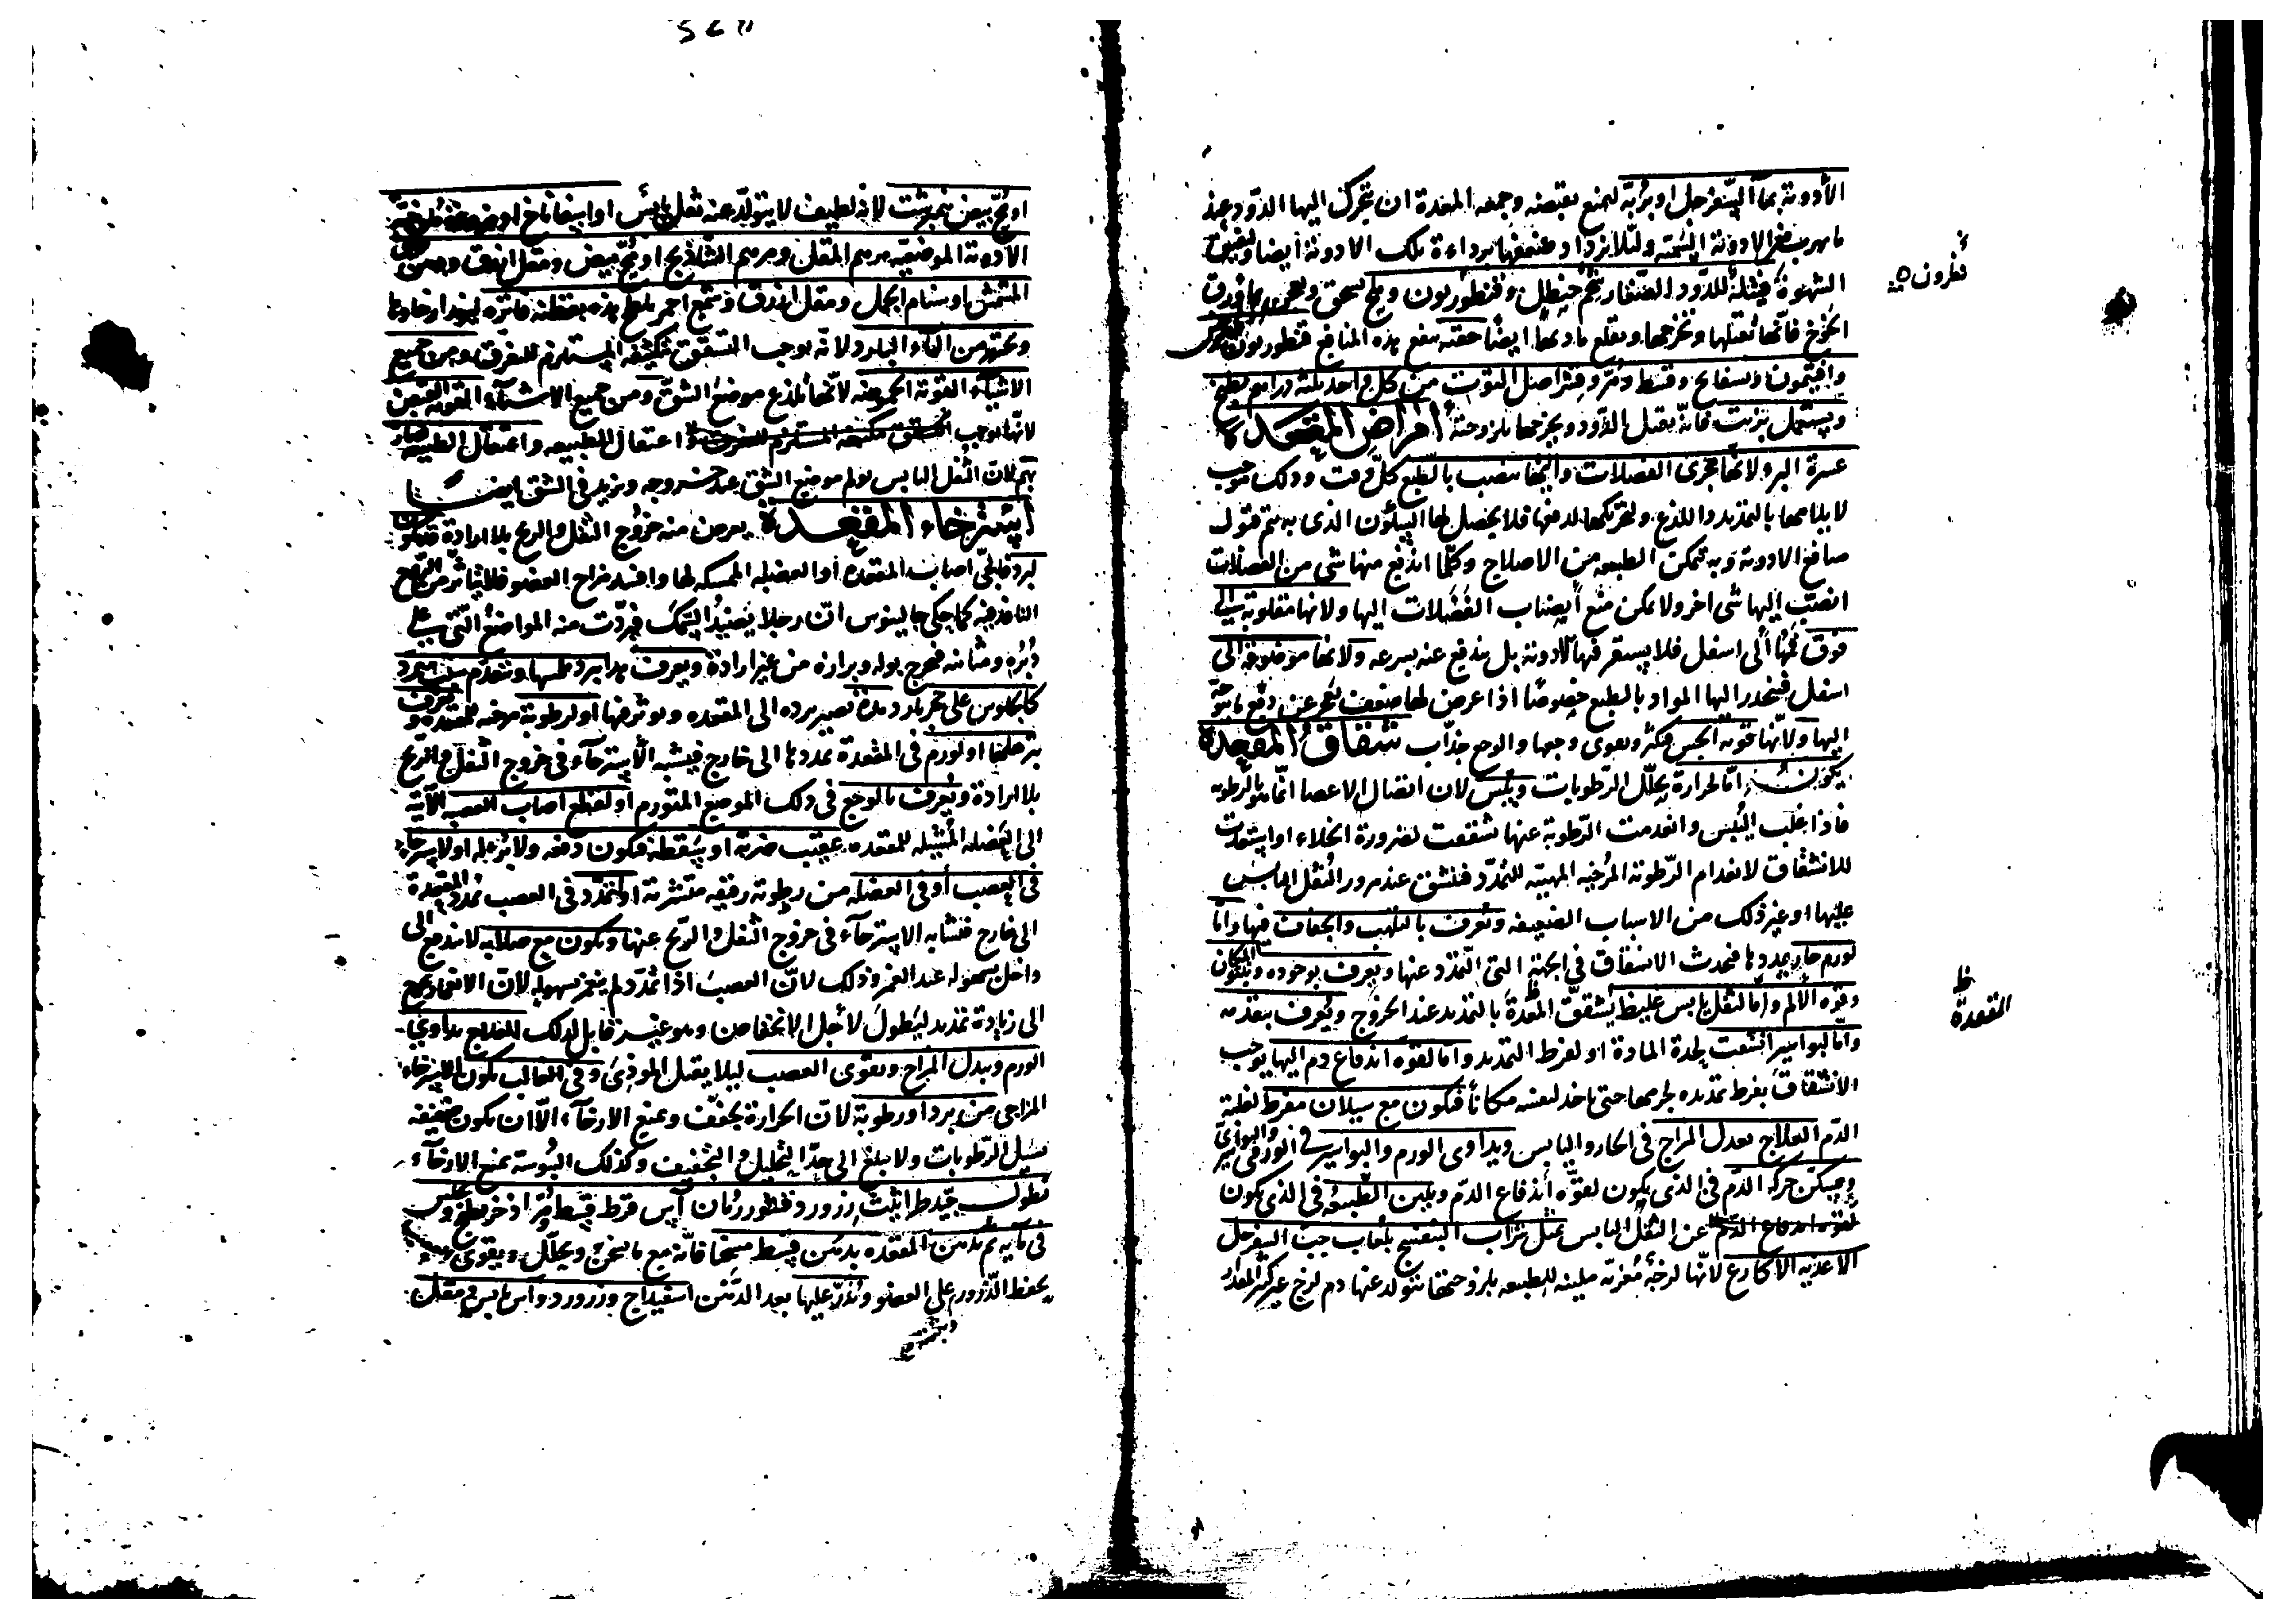 الأدوية بماء السفرجل او بربّه ليمنع بقبضه وجمعه المعدة ان تتحرك اليها الدود عند
الأدوية ولئلا يزداد ضعفها برداءة تلك الادوية ايضا
الشهوة فتيلة للدود الصغار شحم حنظل وقنطوريون وملح يسحق ويعجن
الخوخ فانها تقتلها وتخرجها وتقلع مادتها ايضا حقنة تنفع هذه المنافع قنطوريون
وافتيمون وبسفايج وقسط ومرّ وقشر اصل التوت من كل واحد ثلثة دراهم يطبخ
ويستعمل بزيت فانه يقتل الدود ويخرجها بلزوجته أمراض المقعدة
عسرة البرء لانها مجرى الفضلات وانها تنصب بالطبع كل وقت وذلك موجب
لايلامها بالتمديد واللذع ولتحريكها لدفعها فلا يحصل لها السكون الذي به يتم قبول
منافع الادوية وبه تتمكن الطبيعة من الاصلاح وكلما اندفع منها شي من الفضلات
انصب اليها شي اخر ولا يمكن منع انصباب الفضلات اليها ولانها مقلوبة
فوق فمها الى اسفل فلا يستقر فيها الادوية بل يندفع عنه بسرعة ولانها موضوعة الى
اسفل فينحدر اليها المواد بالطبع خصوصًا اذا عرض لها ضعف يعجز عن دفع ما يتوجه
اليها ولانها قوية الحس فيكثر ويقوى وجعها والوجع جذّاب شقاق المقعدة
يكون امّا لحرارة يحلل الرّطوبات ويبس لان اتصال الاعضا انما هو بالرطوبة
فاذا غلب اليبس وانعدمت الرّطوبة عنها تشققت لضرورة الخلاء او استعدت
للانشقاق لانعدام الرّطوبة المرخية المهيئة للتمدّد فتنشق عند مرور الثفل اليابس
عليها او غير ذلك من الاسباب الضعيفة وتعرف بالتلهب والجفاف فيها وامّا
لورم حار يمددها فيحدث الانشقاق في الجهة التي التمدد عنها ويعرف بوجوده ويكون
وقوة الالم وامّا لثفل يابس غليظ يشقق المقعدة بالتمديد عند الخروج ويعرف بتقدمه
وامّا لبواسير انشقت لحدة المادة او لفرط التمديد وامّا لقوة اندفاع دم اليها يوجب
الانشقاق بفرط تمديده لجرمها حتى ياخذ لنفسه مكانًا فيكون مع سيلان مفرط لغلبة
الدّم العلاج تعدل المزاج في الحار واليابس ويداوى الورم والبواسير في الورمي
ويسكن حركة الدّم في الذي يكون لقوّة اندفاع الدّم ويلين الطّبيعة في الذي يكون
عن الثفل اليابس بمثل شراب البنفسج بلعاب حب السفرجل
الاغذية الاكارع لانها لزجة مغرية ملينة للطبيعة بلزوجتها يتولد عنها دم لزج
نطرون
ظ
المقعدة
او مح بيض نيمرشت لانه لطيف لا يتولّد عنه ثفل يابس او اسفاناخ
الادوية الموضعيّة مرهم المقل ومرهم الشاذنج او مح بيض ومقل ازرق ودهن نوى
المشمش او سنام الجمل ومقل ازرق وشمع احمر بقطنة فاترة
ويحترز من الماء البارد لانه يوجب التشقق بتكثيفه المستلزم للتفرق ومن جميع
الاشياء القوية الحموضة لانها تلذع موضع الشق ومن جميع الاشياء القوية القبض
لانها توجب اعتقال الطبيعة واعتقال الطبيعة ضار
لانّ الثفل اليابس يولم موضع الشق عند خروجه ويزيد في الشق ايضا
استرخاء المقعدة يعرض منه خروج الثفل والريح بلا ارادة فتكون
لبرد فالجي اصاب المقعدة او العضلة الممسكة لها وافسد مزاج العضو فلا يتاثر من الروح
النافذ فيه كما حكى جالينوس انّ رجلا يصيد السمك فبردت منه المواضع التي
دبره ومثانته فخرج بوله وبرازه من غير ارادة ويعرف هذا ببرد ملمسها وبتقدم سبب مبرّد
كالجلوس على حجر بارد مدة تصير برده الى المقعدة ويوثر فيها او لرطوبة مرخية للمقعدة ويعرف
بترهلها او لورم في المقعدة يمددها الى خارج فيشبه الاسترخاء في خروج الثفل والريح
بلا ارادة ويعرف بالوجع في ذلك الموضع المتورم او لقطع اصاب العصبة الآتية
الى العضلة للمقعدة عقيب ضربة او سقطة فيكون دفعة ولا برء له او لاسترخاء
في العصب او في العضلة من رطوبة رقيقة متشربة او لتمدد في العصب تمدد المقعدة
الى خارج فتشابه الاسترخاء في خروج الثفل والريح عنها ويكون مع صلابة لا يندفع الى
داخل بسهولة عند الغمز وذلك لانّ العصب اذا تمدّد لم ينغمز بسهولة لانّ الانغماز يحوج
الى زيادة تمديد ليطول لأجل الانخفاض وهو غير قابل لذلك العلاج يداوى
الورم ويبدل المزاج ويقوى العصب ليلا يقبل الموذي وفي الغالب يكون الاسترخاء
المزاجي من برد او رطوبة لانّ الحرارة يجفف ويمنع الارخاء الّا ان يكون ضعيفة
تسيل الرّطوبات ولا يبلغ الى حدّ التحليل والتجفيف وكذلك اليبوسة يمنع الارخاء
نطول جيد طراثيث وزرورد وقشور رمان آس قرط قسط مرّ اذخر يطبخ ويجلس
في مائه ثم يدهن المقعدة بدهن قسط مسخنا فانّه مع ما يسخن ويحلّل ويقوى
يحفظ الذّرور على العضو ويذرّ عليها بعد الدّهن اسفيداج وزرورد وآس يابس ومقل